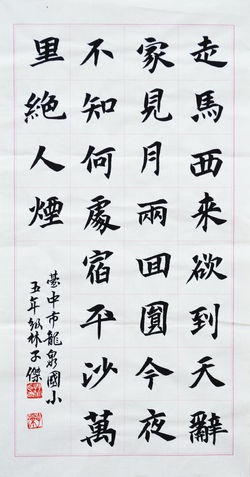 走馬西来欲到天辭
家見月兩回圓今夜
不知何處宿平沙萬
里絕人煙
臺中市龍泉國小
五年級林子傑